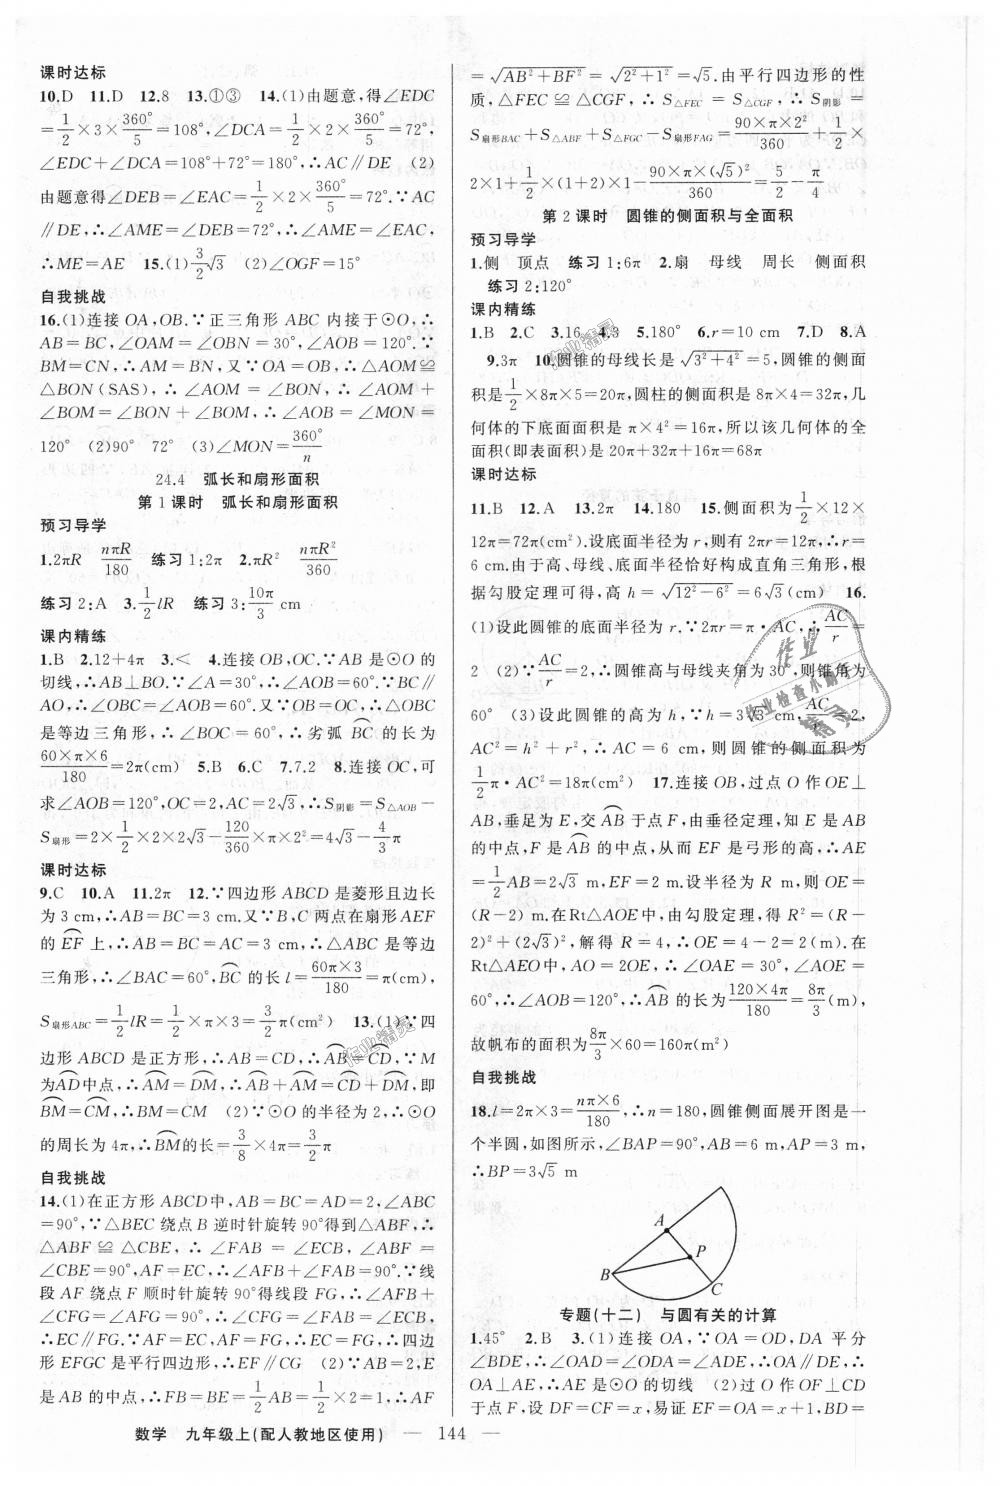 课时达标
10.D 11.D 12.8 13.①③ 14.(1)由题意,得∠EDC
=1/2×3×360°/5=108°,∠DCA=1/2×2×360°/5=72°,
∠EDC+∠DCA=108°+72°=180°,∴AC∥DE (2)
由题意得∠DEB=72°,∠EAC=1/2×2×360°/5=72°.∵AC
∥DE,∴∠AME=∠DEB=72°,∴∠AME=∠EAC,
∴ME=AE 15.(1)3/2√3 (2)∠OGF=15°
自我挑战
16.(1)连接OA,OB.∵正三角形ABC内接于⊙O,∴
AB=BC,∠OAM=∠OBN=30°,∠AOB=120°.∵
BM=CN,∴AM=BN,又∵OA=OB,∴△AOM≌
△BON(SAS),∴∠AOM=∠BON,∴∠AOM+
∠BOM=∠BON+∠BOM,∴∠AOB=∠MON=
120° (2)90° 72° (3)∠MON=360°/n
24.4 弧长和扇形面积
第1课时 弧长和扇形面积
预习导学
1.2πR nπR/180 练习1:2π 2.πR² nπR²/360
练习2:A 3.1/2lR 练习3:10π/3 cm
课内精练
1.B 2.12+4π 3.< 4.连接OB,OC.∵AB是⊙O的
切线,∴AB⊥BO.∵∠A=30°,∴∠AOB=60°.∵BC∥
AO,∴∠OBC=∠AOB=60°.又∵OB=OC,∴△OBC
是等边三角形,∴∠BOC=60°,∴劣弧BC的长为
60×π×6/180=2π(cm) 5.B 6.C 7.7.2 8.连接OC,可
求∠AOB=120°,OC=2,AC=2√3,∴S阴影=S△AOB-
S扇形=2×1/2×2×2√3-120/360×π×2²=4√3-4/3π
课时达标
9.C 10.A 11.2π 12.∵四边形ABCD是菱形且边长
为3 cm,∴AB=BC=3 cm.又∵B,C两点在扇形AEF
的EF上,∴AB=BC=AC=3 cm,∴△ABC是等边
三角形,∴∠BAC=60°,BC的长l=60π×3/180=π(cm),
S扇形ABC=1/2lR=1/2×π×3=3/2π(cm²) 13.(1)∵四
边形ABCD是正方形,∴AB=CD,∴AB=CD,∵M
为AD中点,∴AM=DM,∴AB+AM=CD+DM,即
BM=CM,∴BM=CM (2)∵⊙O的半径为2,∴⊙O
的周长为4π,∴BM的长=3/8×4π=3/2π
自我挑战
14.(1)在正方形ABCD中,AB=BC=AD=2,∠ABC
=90°,∵△BEC绕点B逆时针旋转90°得到△ABF,∴
△ABF≌△CBE,∴∠FAB=∠ECB,∠ABF=
∠CBE=90°,AF=EC,∴∠AFB+∠FAB=90°.∵线
段AF绕点F顺时针旋转90°得线段FG,∴∠AFB+
∠CFG=∠AFG=90°,∴∠CFG=∠FAB=∠ECB,
∴EC∥FG.∵AF=EC,AF=FG,∴EC=FG,∴四边
形EFGC是平行四边形,∴EF∥CG (2)∵AB=2,E
是AB的中点,∴FB=BE=1/2AB=1/2×2=1,∴AF
=√(AB²+BF²)=√(2²+1²)=√5.由平行四边形的性
质,△FEC≌△CGF,∴S△FEC=S△CGF,∴S阴影=
S扇形BAC+S△ABF+S△FGC-S扇形FAG=90×π×2²/360+1/2×
2×1+1/2×(1+2)×1-90×π×(√5)²/360=5/2-π/4
第2课时 圆锥的侧面积与全面积
预习导学
1.侧 顶点 练习1:6π 2.扇 母线 周长 侧面积
练习2:120°
课内精练
1.B 2.C 3.16 4.3 5.180° 6.r=10 cm 7.D 8.A
9.3π 10.圆锥的母线长是√(3²+4²)=5,圆锥的侧面
积是1/2×8π×5=20π,圆柱的侧面积是8π×4=32π,几
何体的下底面面积是π×4²=16π,所以该几何体的全
面积(即表面积)是20π+32π+16π=68π
课时达标
11.B 12.A 13.2π 14.180 15.侧面积为1/2×12×
12π=72π(cm²).设底面半径为r,则有2πr=12π,∴r=
6 cm.由于高、母线、底面半径恰好构成直角三角形,根
据勾股定理可得,高h=√(12²-6²)=6√3(cm) 16.
(1)设此圆锥的底面半径为r.∵2πr=π·AC,∴AC/r=
2 (2)∵AC/r=2,∴圆锥高与母线夹角为30°,则锥角为
60° (3)设此圆锥的高为h,∵h=3√3 cm,AC/r=2,
AC²=h²+r²,∴AC=6 cm,则圆锥的侧面积为
1/2π·AC²=18π(cm²) 17.连接OB,过点O作OE⊥
AB,垂足为E,交AB于点F,由垂径定理,知E是AB
的中点,F是AB的中点,从而EF是弓形的高,∴AE
=1/2AB=2√3 m,EF=2 m.设半径为R m,则OE=
(R-2) m.在Rt△AOE中,由勾股定理,得R²=(R-
2)²+(2√3)²,解得R=4,∴OE=4-2=2(m).在
Rt△AEO中,AO=2OE,∴∠OAE=30°,∠AOE=
60°,∴∠AOB=120°,∴AB的长为120×4π/180=8π/3(m),
故帆布的面积为8π/3×60=160π(m²)
自我挑战
18.l=2π×3=nπ×6/180,∴n=180,圆锥侧面展开图是一
个半圆,如图所示,∠BAP=90°,AB=6 m,AP=3 m,
∴BP=3√5 m
A
P
B
C
专题(十二) 与圆有关的计算
1.45° 2.B 3.(1)连接OA,∵OA=OD,DA平分
∠BDE,∴∠OAD=∠ODA=∠ADE,∴OA∥DE,∴
OA⊥AE,∴AE是⊙O的切线 (2)过点O作OF⊥CD
于点F,设DF=CF=x,易证OA=EF=x+1,BD=
数学 九年级上(配人教地区使用) — 144 —
作业
作业检查小助手
精灵
作业精灵
作业精灵